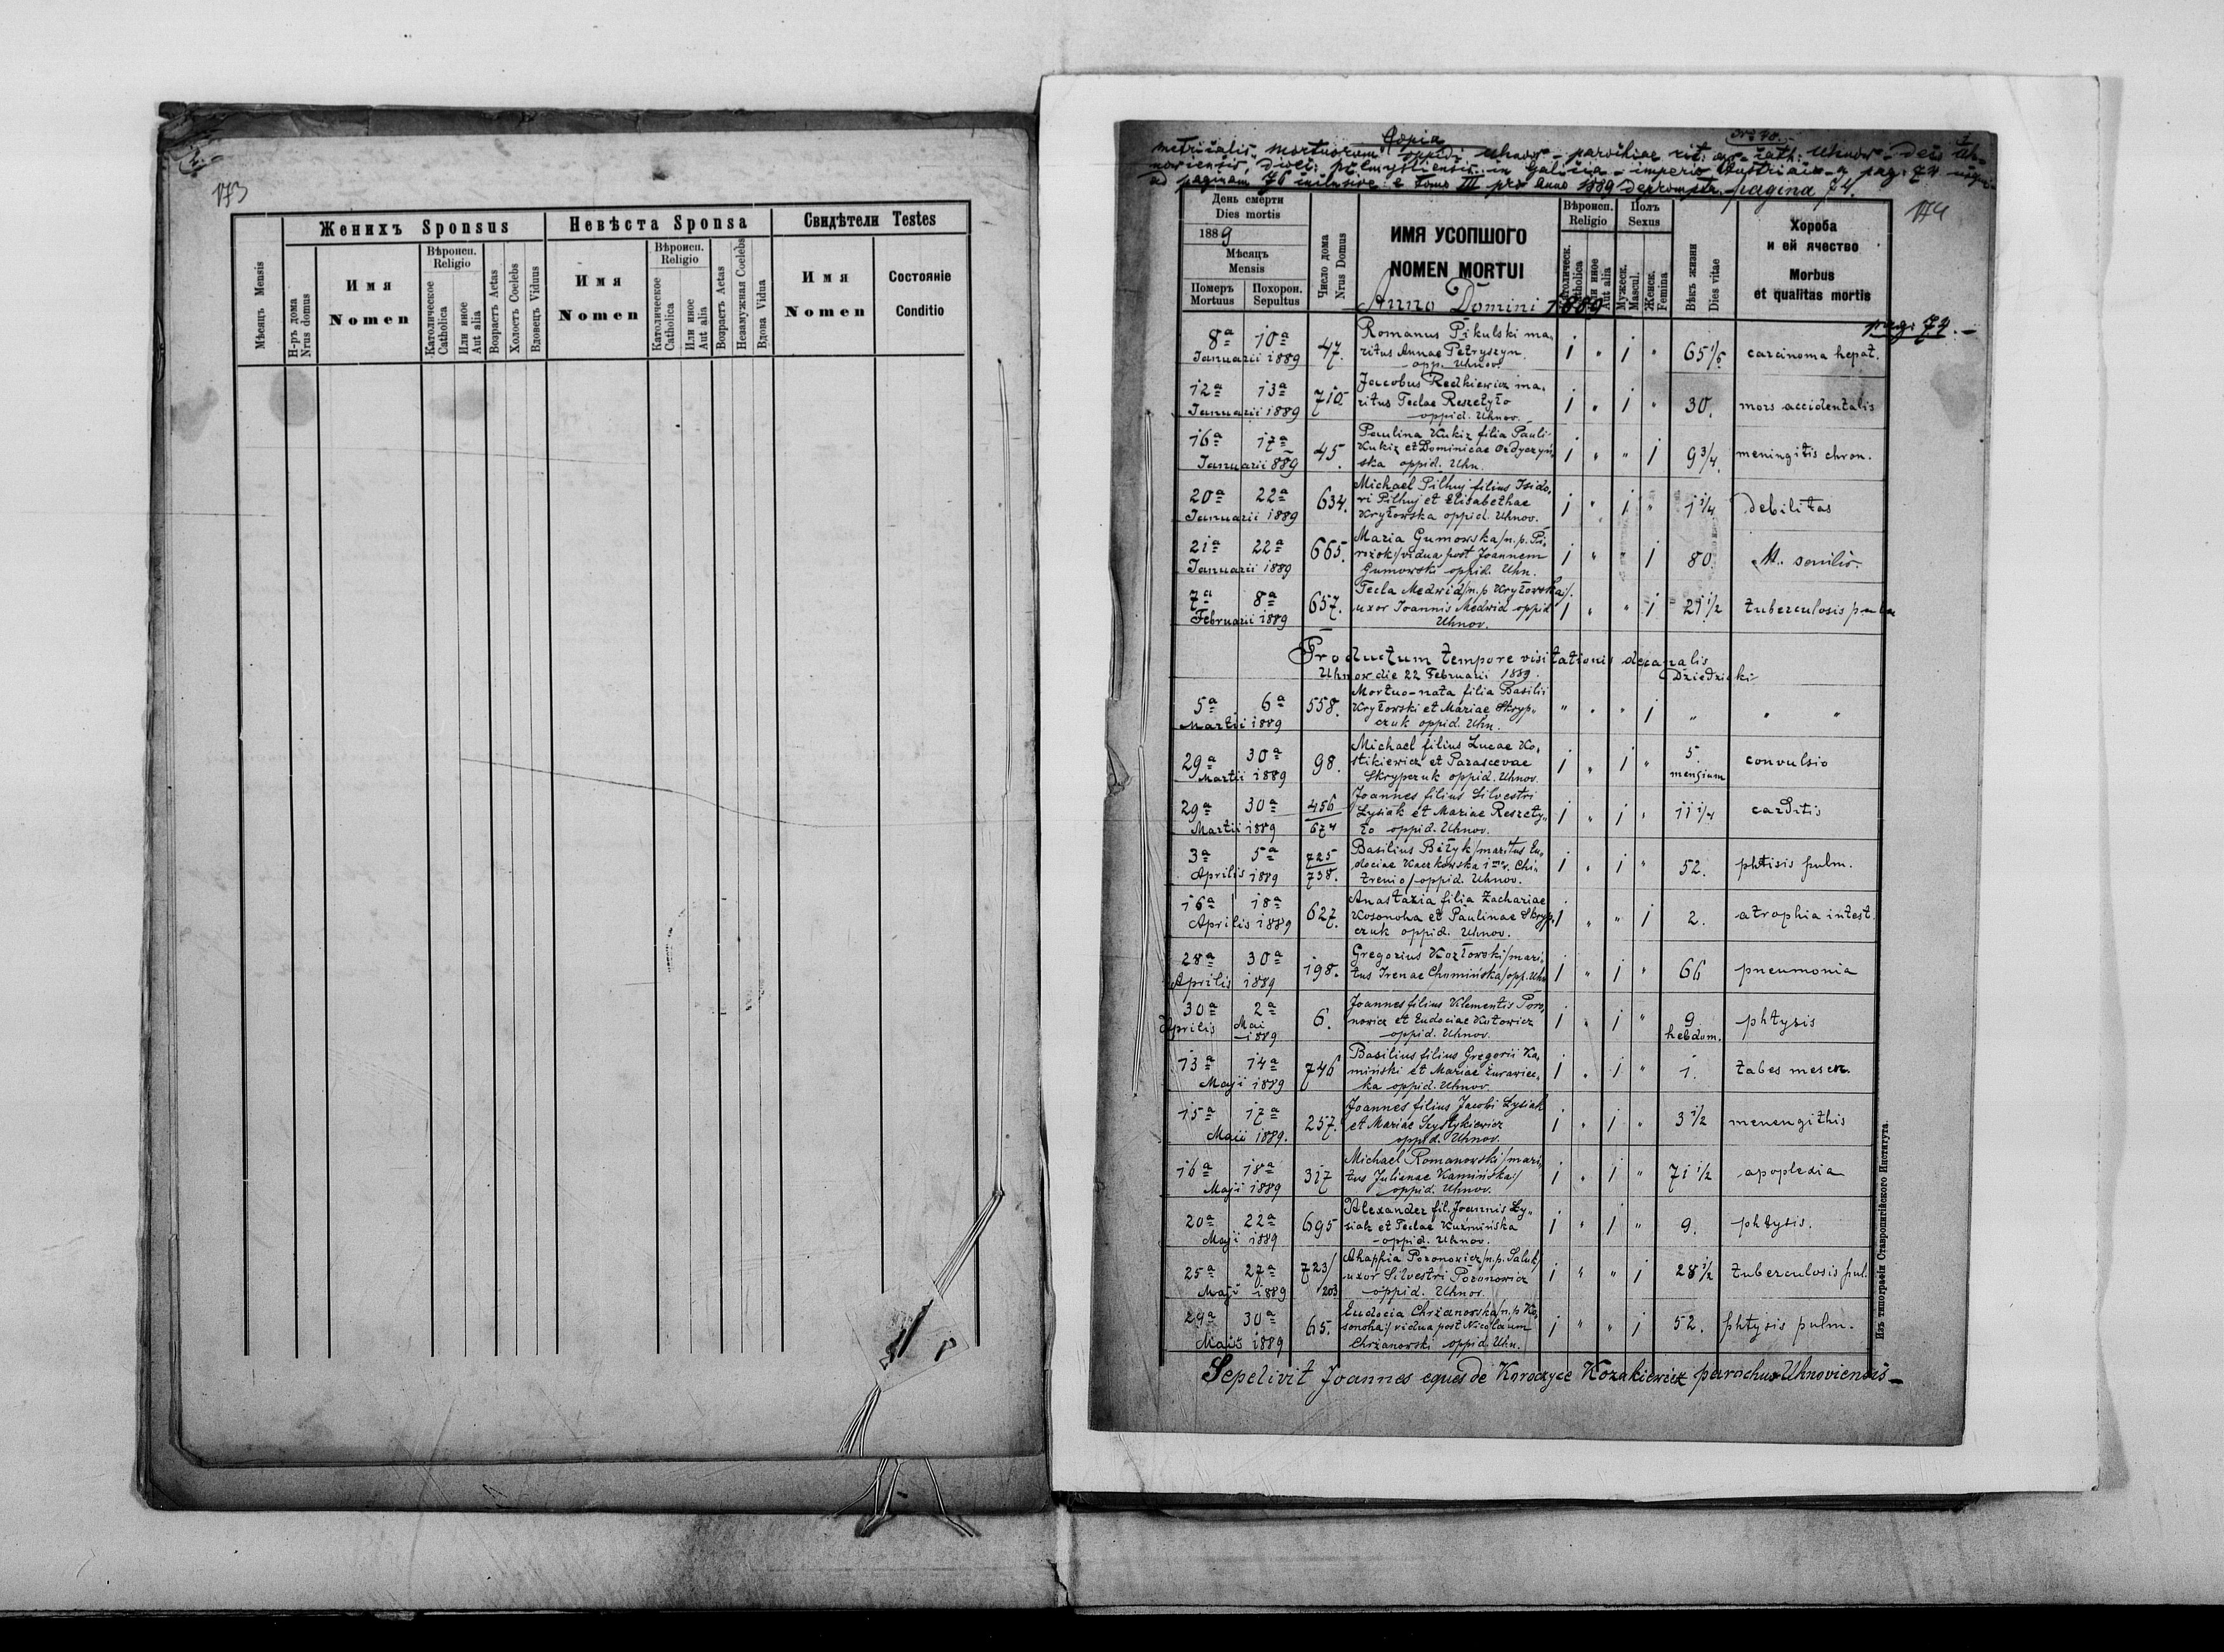 173
Женихъ Sponsus
Невѣста Sponsa
Свидѣтели Testes
Мѣсяцъ Mensis
Н-ръ дома Nrus domus
Имя Nomen
Вѣроисп. Religio
Католическое Catholica
Или иное Aut alia
Возрастъ Aetas
Холость Coelebs
Вдовецъ Viduus
Имя Nomen
Вѣроисп. Religio
Католическое Catholica
Или иное Aut alia
Возрастъ Aetas
Незамужная Coelebs
Вдова Vidua
Имя Nomen
Состояніе Conditio
Copia
metricalis mortuorum oppidi Uhnow - parochiae rit. gr. cath. Uhnow
noviensis, dioec. Premysliensis in Galicia - imperio Austriaco a pag. 74
ad paginam 76 inclusive e tomo III pro anno 1889 deprompta. pagina 74.
174
День смерти
Dies mortis
1889
Мѣсяцъ
Mensis
Померъ Mortuus
Похорон. Sepultus
Число дома
Nrus Domus
ИМЯ УСОПШОГО
NOMEN MORTUI
Anno Domini 1889
Вѣроисп. Religio
Католическ. Catholica
Или иное Aut alia
Полъ Sexus
Мужеск. Mascul.
Женск. Femina
Вѣкъ жизни
Dies vitae
Хороба
и ей ячество
Morbus
et qualitas mortis
pag. 74.
8a 10a Januarii 1889 47. Romanus Pikulski ma-
ritus Annae Petryszyn
opp. Uhnov. 1 " 1 " 65 1/5 carcinoma hepat.
12a 13a Januarii 1889 710 Jacobus Redkiewicz ma-
ritus Teclae Reszetyło
oppid. Uhnov. 1 " 1 " 30. mors accidentalis
16a 17a Januarii 889 45. Paulina Kukiz filia Pauli
Kukiz et Dominicae Ordyczyń
ska oppid. Uhn. 1 " " 1 9 3/4. meningitis chron.
20a 22a Januarii 1889 634. Michael Pilhuj filius Isido-
ri Pilhuj et Elisabethae
Kryłowska oppid. Uhnov. 1 " 1 " 1 1/4 debilitas
21a 22a Januarii 1889 665. Maria Gumowska /n. p. Pi-
rożok/ vidua post Joannem
Gumowski oppid. Uhn. 1 " 1 80. M. senilis.
7a 8a Februarii 1889 657. Tecla Medwid /n. p Kryłowska/.
uxor Joannis Medwid oppid
Uhnov. 1 " " 1 21 1/2 tuberculosis pulm
Productum tempore visitationis decanalis
Uhnow die 22 Februarii 1889. Dziedzicki
5a 6a Martii 1889 558. Mortuo-nata filia Basilii
Kryłowski et Mariae Skryp-
czuk oppid. Uhn. " " " 1 " " "
29a 30a Martii 1889 98. Michael filius Lucae Ko-
stikiewicz et Parascevae
Skrypczuk oppid. Uhnov. 1 " 1 " 5. mensium convulsio
29a 30a Martii 1889 456 674 Joannes filius Silvestri
Łysiak et Mariae Reszety-
ło oppid. Uhnov. 1 " 1 " 11 1/4 carditis
3a 5a Aprilis 1889 725 738. Basilius Biłyk /maritus Eu-
dociae Kaczkowska
oppid. Uhnov. 1 " 1 " 52. phtisis pulm.
16a 18a Aprilis 1889 627. Anastazia filia Zachariae
Kosonoha et Paulinae Skryp-
czuk oppid. Uhnov. 1 " " 1 2. atrophia intest.
28a 30a Aprilis 1889 198. Gregorius Kozłowski /mari-
tus Irenae Chomińska/ opp. Uhn 1 " 1 " 66 pneumonia
30a Aprilis 2a Mai 1889 6. Joannes filius Klementis Poro-
nowicz et Eudociae Kotowicz
oppid. Uhnov. 1 " 1 " 9 hebdom. phtysis
13a 14a Maji 1889 746 Basilius filius Gregorii Ka-
miński et Mariae Żurawiec-
ka oppid. Uhnov. 1 " 1 " 1. tabes meser.
15a 17a Maii 1889. 257. Joannes filius Jacobi Łysiak
et Mariae Szyłykiewicz
oppid. Uhnov. 1 " 1 " 3 1/2 menengithis
16a 18a Maji 1889 317 Michael Romanowski /mari-
tus Julianae Kamińska/
oppid. Uhnov. 1 " 1 " 71 1/2 apoplexia
20a 22a Maji 1889 695 Alexander fil. Joannis Ły-
siak et Teclae Kuźmińska
oppid. Uhnov. 1 " 1 " 9. phtysis.
25a 27a Maji 1889 723/203 Ahaphia Poronowicz /n. p. Saluk/
uxor Silvestri Poronowicz
oppid. Uhnov. 1 " " 1 28 1/2 tuberculosis pul.
29a 30a Maiis 1889 65. Eudocia Chrżanowska /n. p Ko-
sonoha/ vidua post Nicolaum
Chrżanowski oppid. Uhn. 1 " " 1 52. phtysis pulm.
Sepelivit Joannes eques de Koroczyce Kozakiewicz parochus Uhnoviensis
Изъ типографіи Ставропигійского Института.